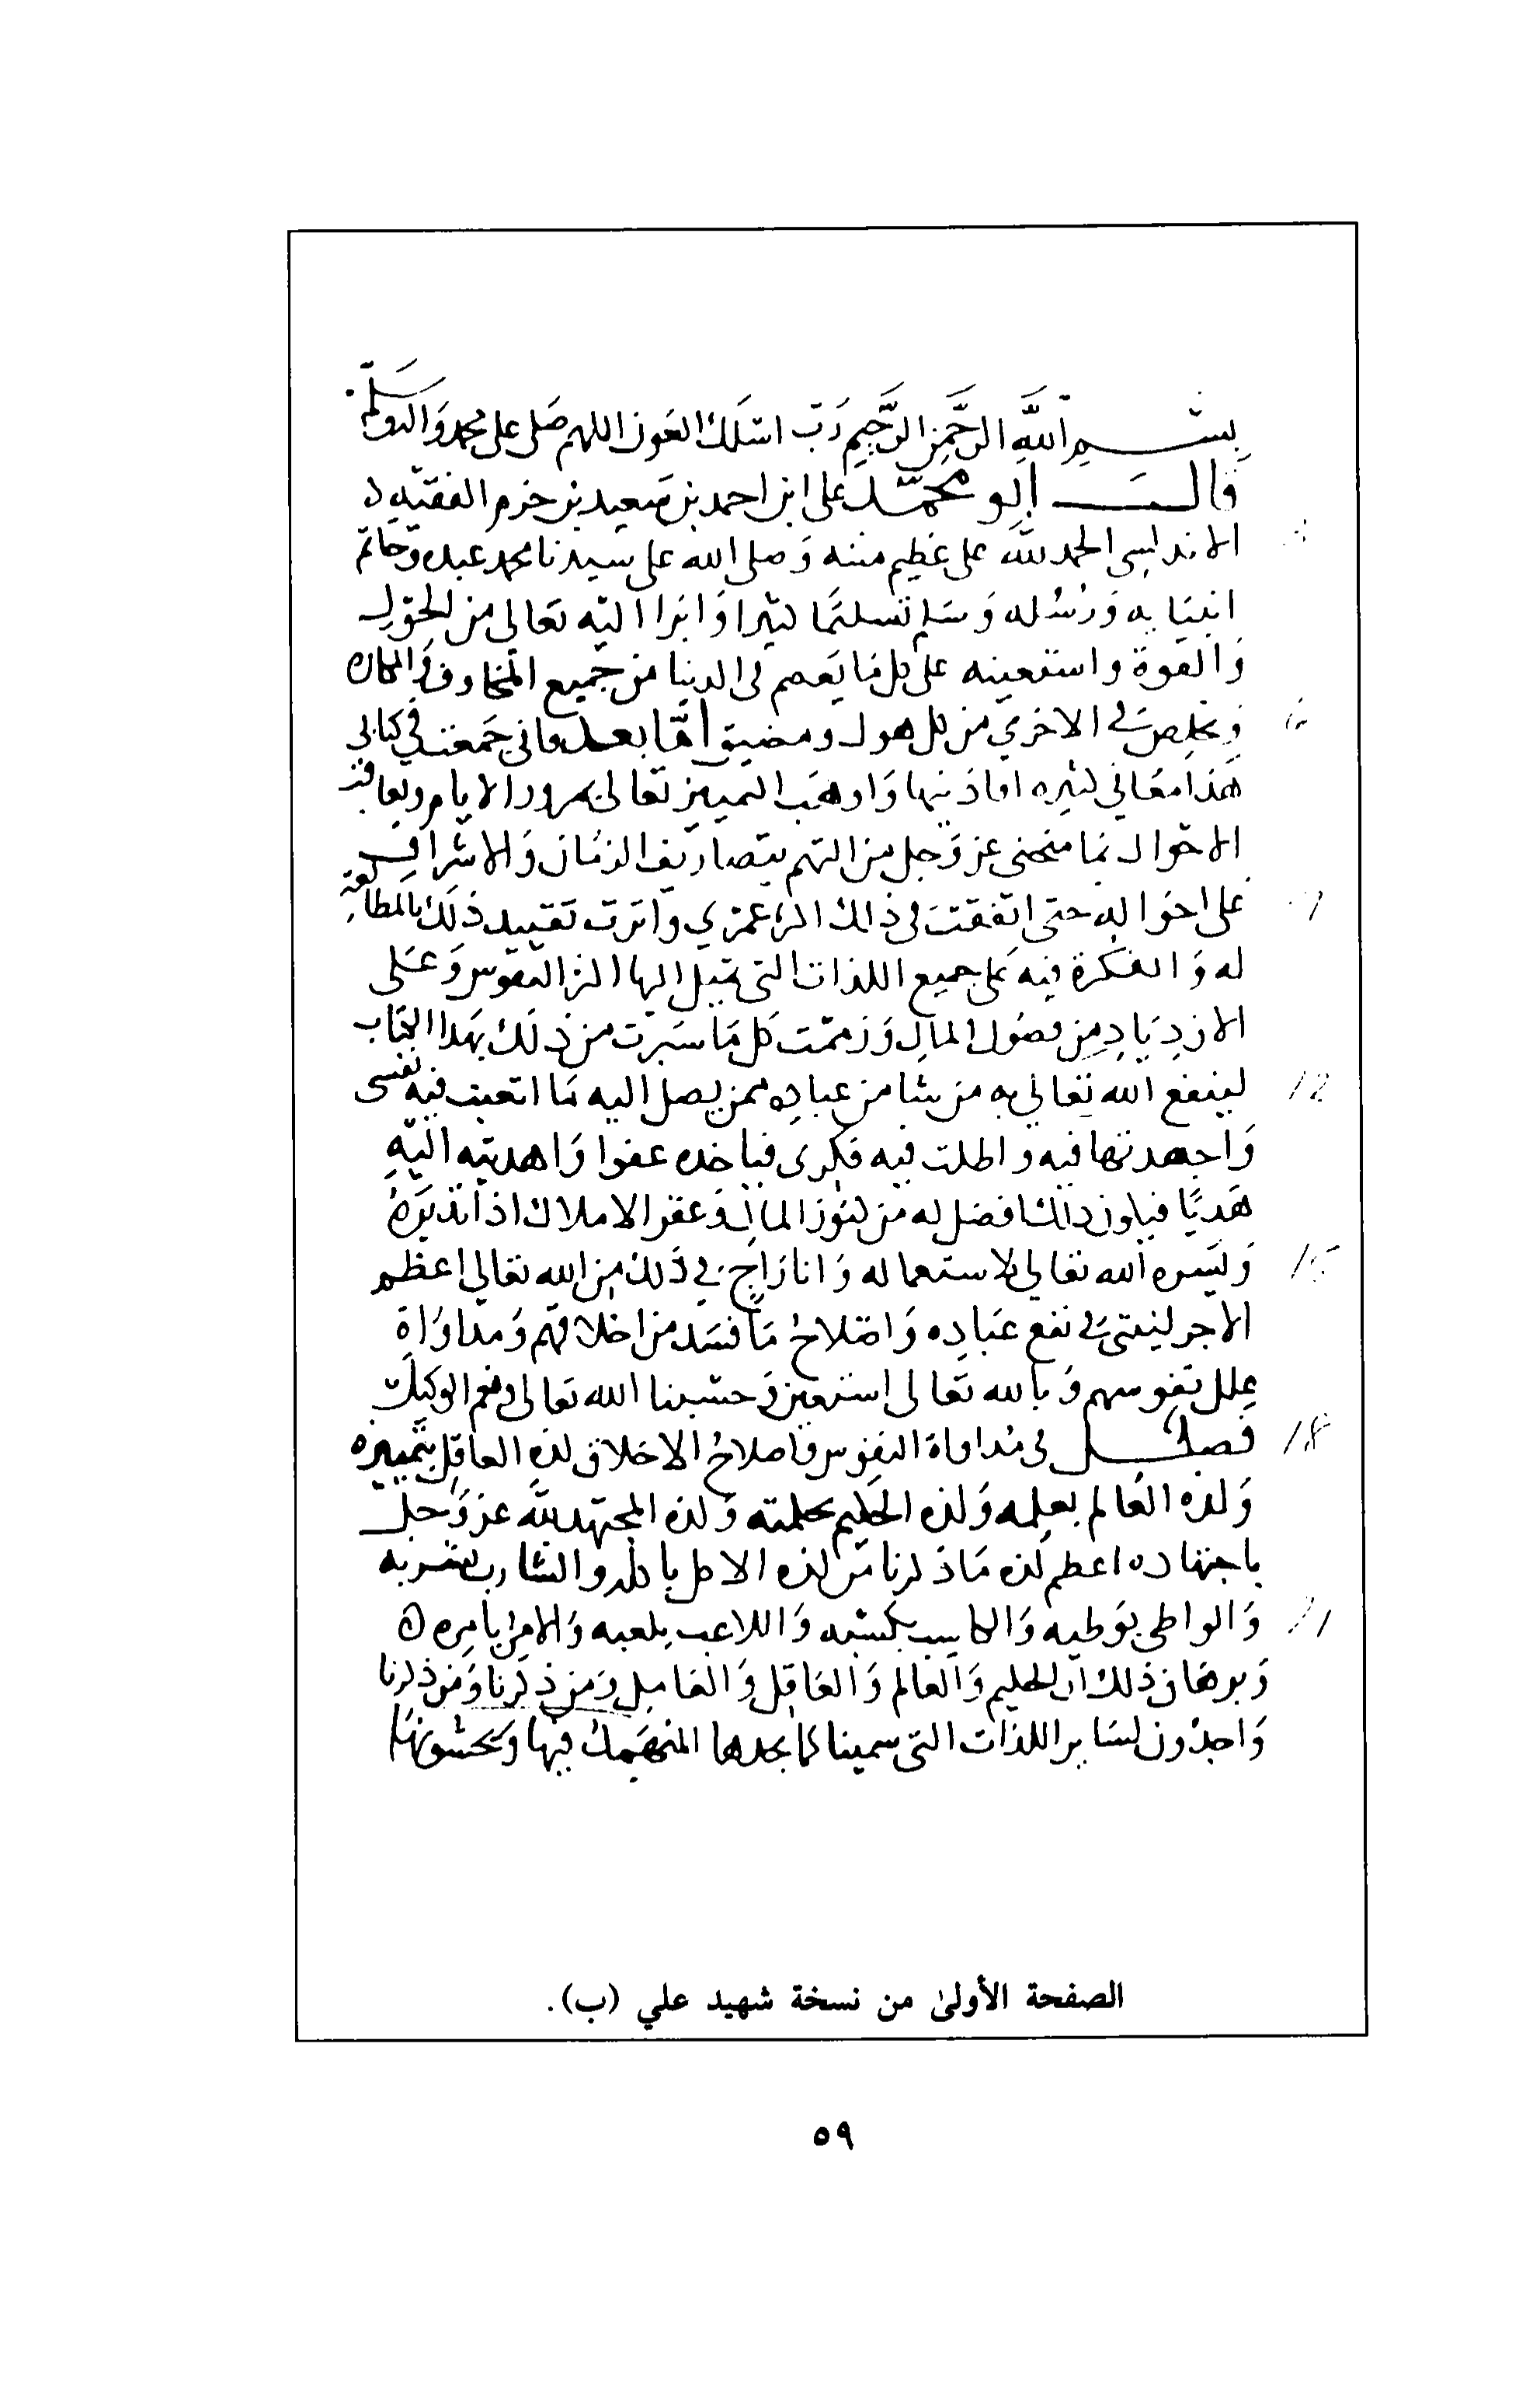 بسم الله الرحمن الرحيم رب اسئلك العون اللهم صل على محمد واله وسلم
قال ابو محمد على ابن احمد بن سعيد بن حزم الفقيه
الاندلسى الحمد لله على عظيم مننه وصلى الله على سيدنا محمد عبده وخاتم
انبيايه ورسله وسلم تسليما كثيرا وابرا اليه تعالى من الحول
والقوة واستعينه على كل ما يعصم فى الدنيا من جميع المخاوف والمكاره
ويخلص فى الاخرى من كل هول ومضيق اما بعد فانى جمعت فى كتابى
هذا معانى كثيره افادنيها واهب التمييز تعالى بمرور الايام وتعاقب
الاحوال بما منحنى عز وجل من التهم بتصاريف الزمان والاشراف
على احواله حتى انفقت فى ذلك اكثر عمرى واثرت تقييد ذلك بالمطالعة
له والفكرة فيه على جميع اللذات التى تميل اليها اكثر النفوس وعلى
الازدياد من فضول المال وزممت كل ما سبرت من ذلك بهذا الكتاب
لينفع الله تعالى به من شا من عباده ممن يصل اليه ما اتعبت فيه نفسى
واجهدتها فيه واطلت فيه فكرى فياخده عفوا واهديته اليه
هديا فيكون ذلك افضل له من كنوز المال وعقر الاملاك اذا تدبره
ويسره الله تعالى لاستعماله وانا راج فى ذلك من الله تعالى اعظم
الاجر لنيتى فى نفع عباده واصلاح ما فسد من اخلاقهم ومداواة
علل نفوسهم وبالله تعالى استعين وحسبنا الله تعالى ونعم الوكيل
فصل فى مداواة النفوس واصلاح الاخلاق لذه العاقل بتمييزه
ولذه العالم بعلمه ولذه الحكيم بحكمته ولذه المجتهد لله عز وجل
باجتهاده اعظم لذه ما ذكرنا من لذه الاكل باكله والشارب بشربه
والواطى بوطيه والكاسب بكسبه واللاعب بلعبه والامر بامره
وبرهان ذلك ان الحكيم والعالم والعاقل والعامل ومن ذكرنا ومن ذكرنا
واجدون لساير اللذات التى سمينا كما يجدها المنهمك فيها ويحسونها
الصفحة الأولىٰ من نسخة شهيد علي (ب).
٥٩
12
15
18
21